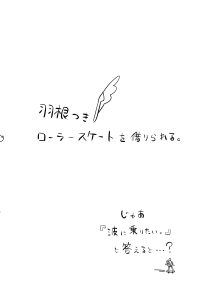 羽根つき
ローラースケートを借りられる。
じゃあ
『波に乗りたい。』
と答えると…?